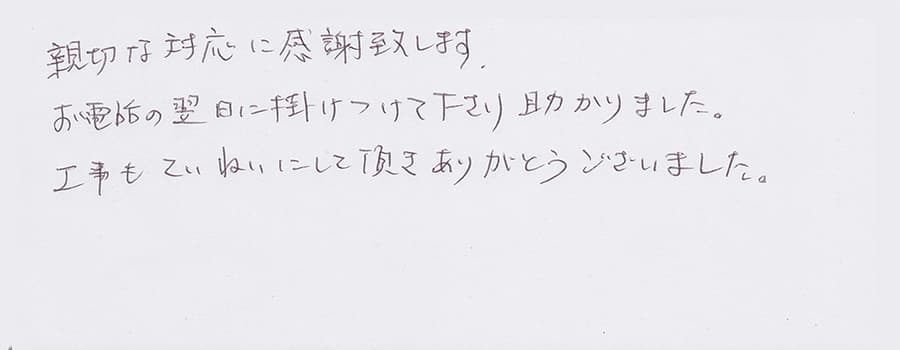 親切な対応に感謝致します.
お電話の翌日に掛けつけて下さり助かりました。
工事もていねいにして頂きありがとうございました。